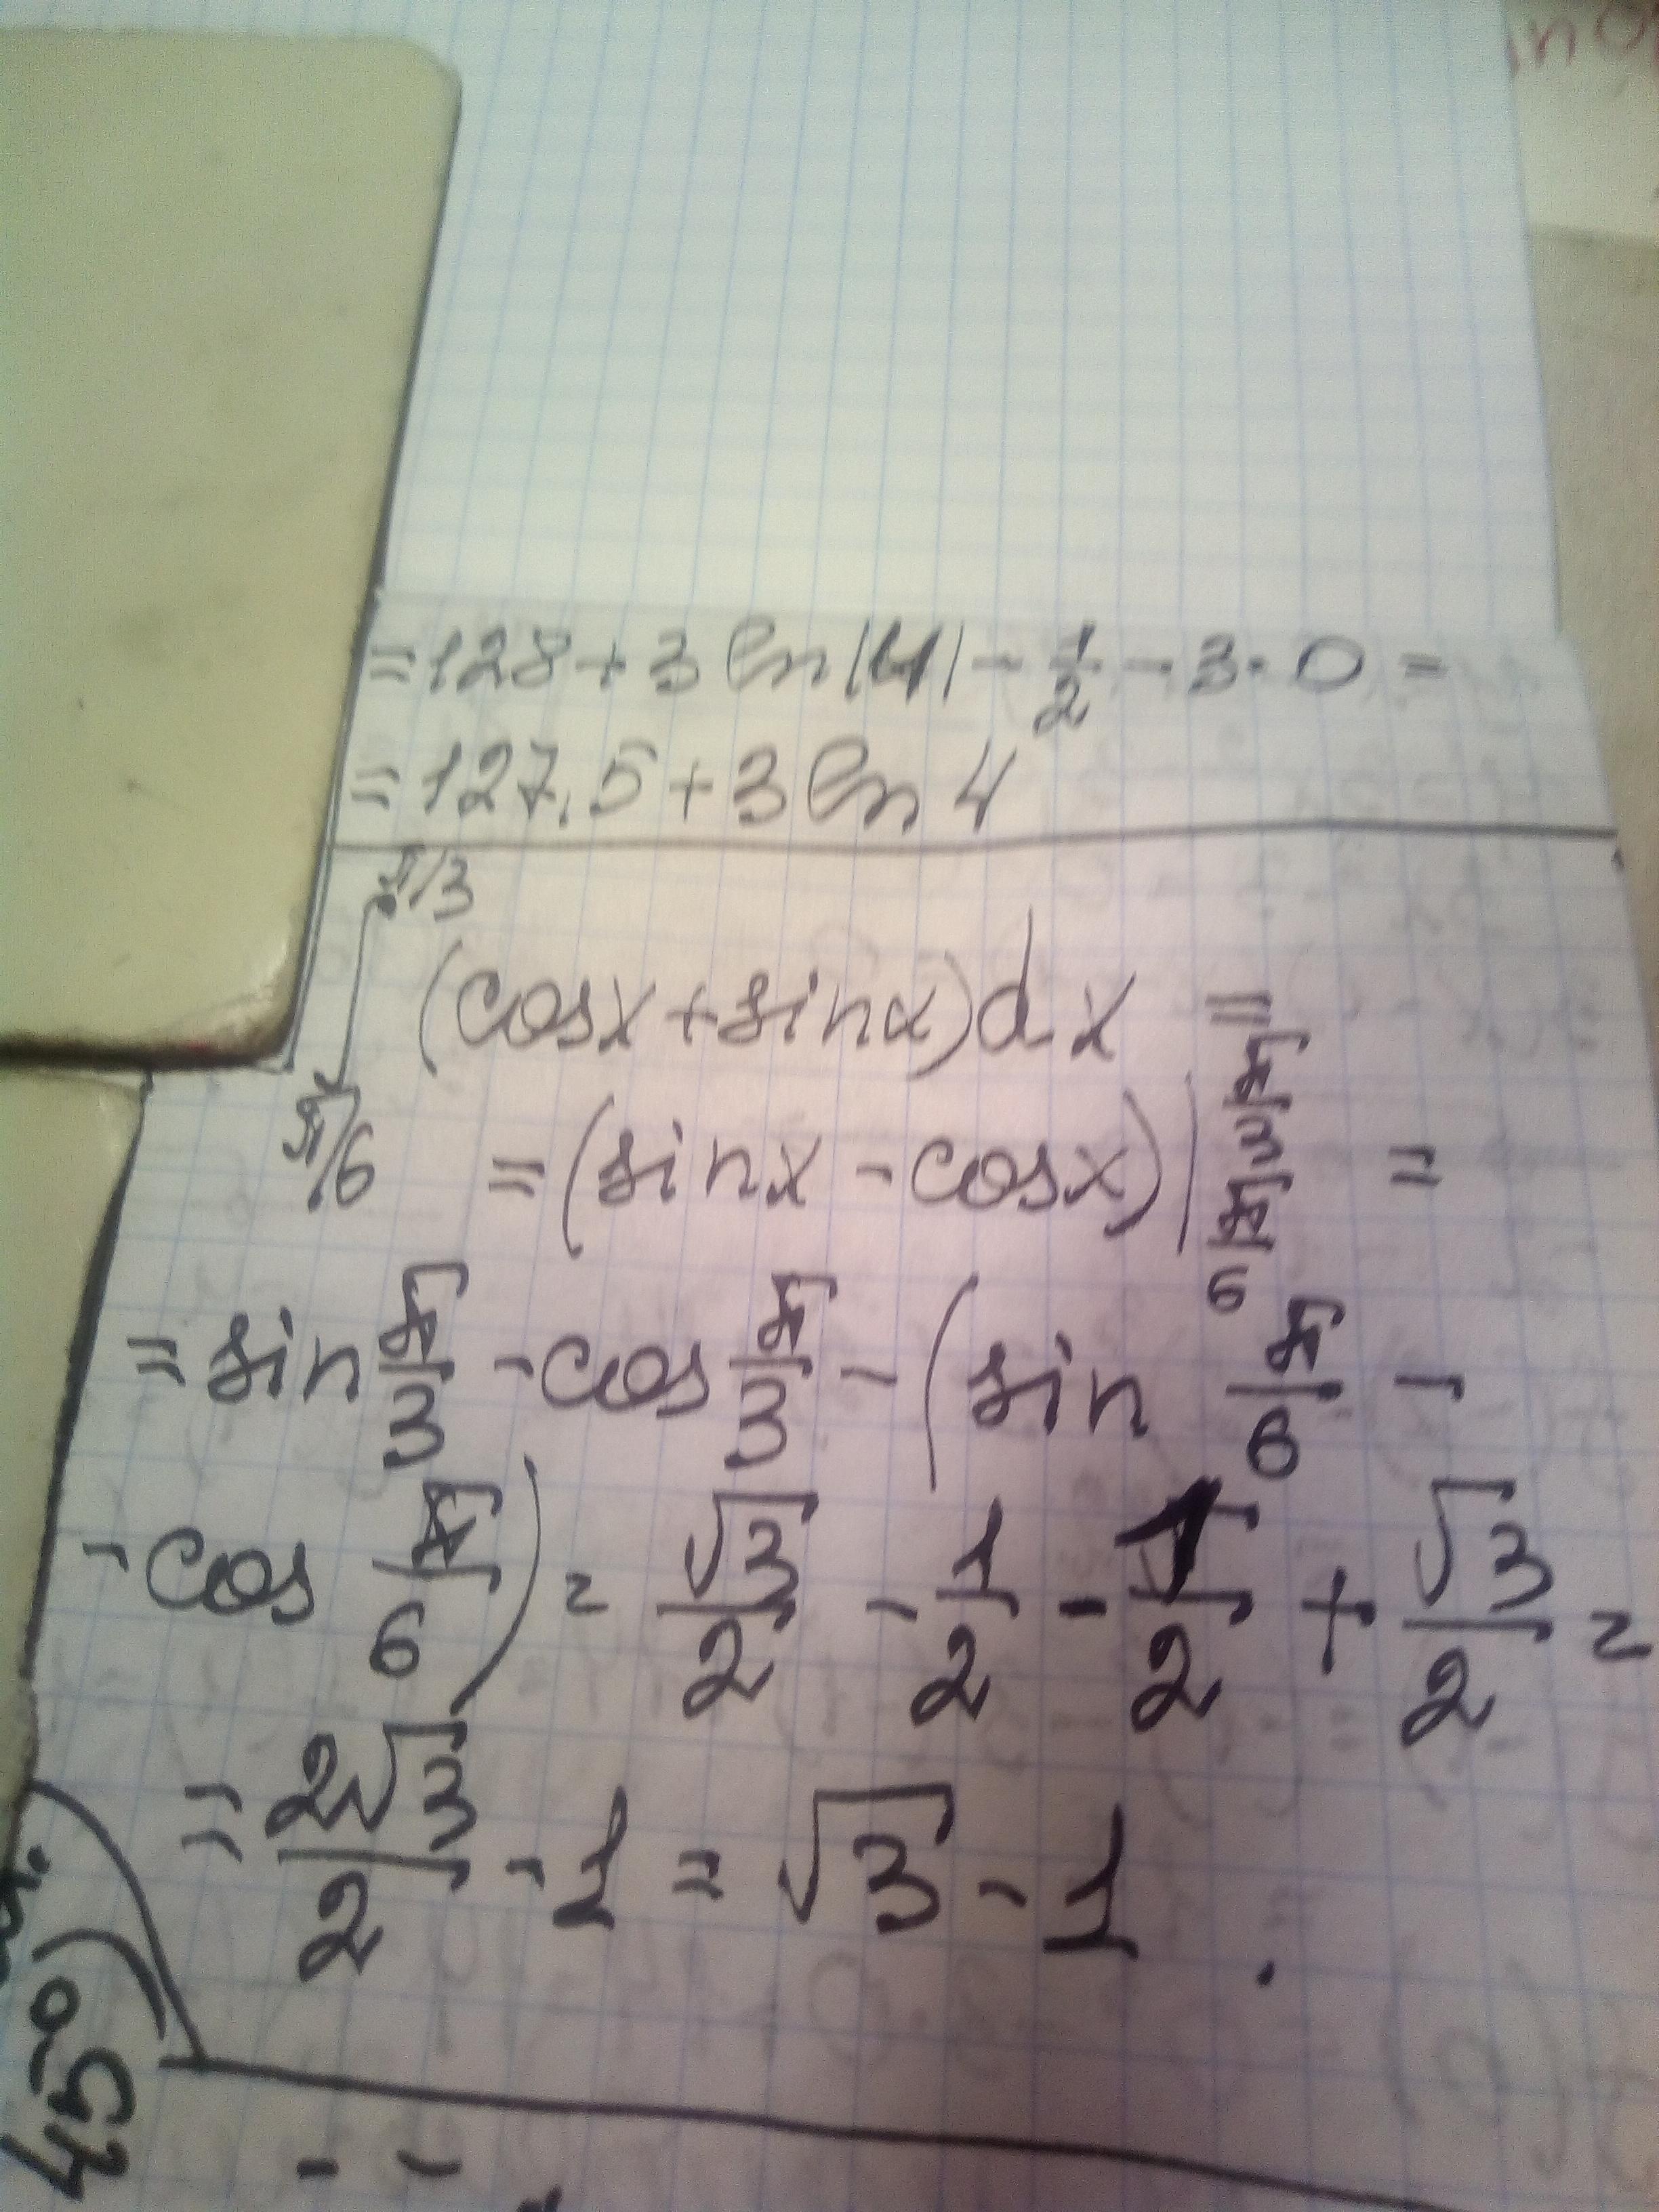 =128+3ln|4|-1/2-3·0=
=127.5+3ln4
∫_{π/6}^{π/3} (cosx+sinx)dx =
=(sinx-cosx)|_{π/6}^{π/3} =
=sin π/3 -cos π/3 -(sin π/6 -
-cos π/6) = √3/2 - 1/2 - 1/2 + √3/2 =
= 2√3/2 -1 = √3 -1.
45°